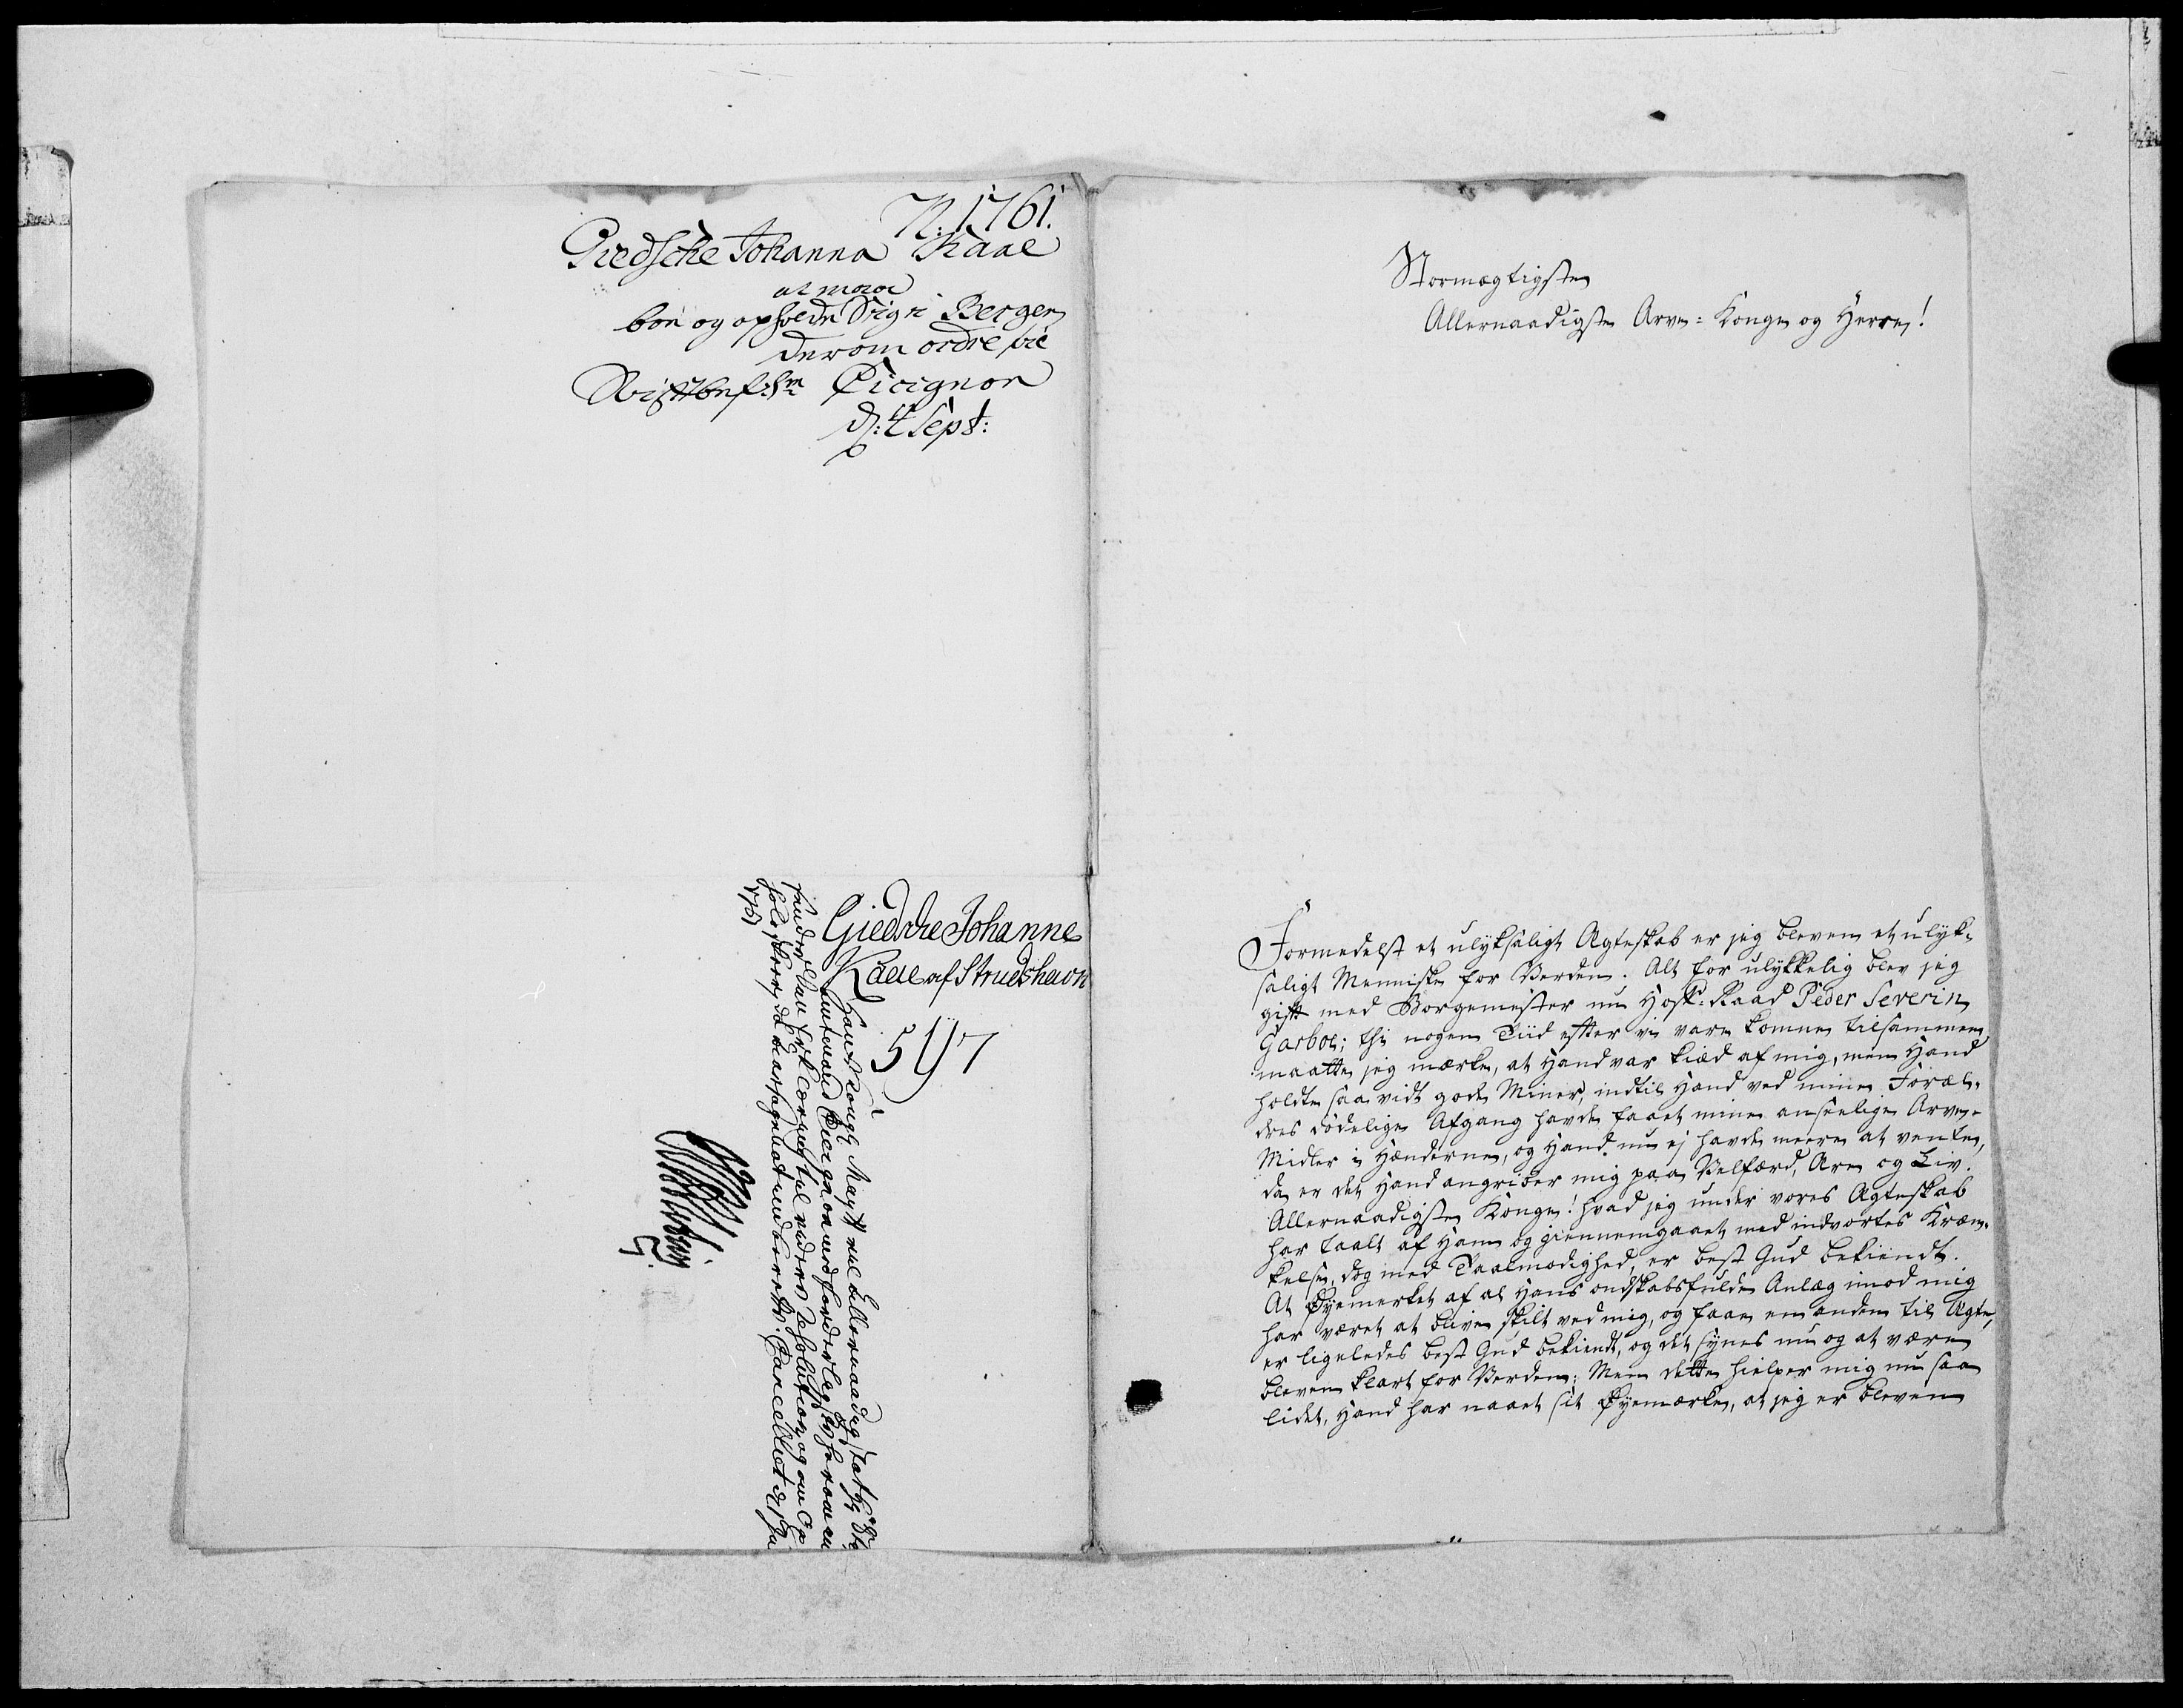 N: 1761.
Giedsche Johanna Kaae
at maae
boe og opholde Sig i Bergen
derom ordre til
Stiftbef:
Cicignon
d: 4 Sept:
Giedsche Johanne
Kaae af Strudshavn
597
Hans Kongl. May.
Cicignon
Resolution og
Cancelliet d.
1761
Stormægtigste
Allernaadigste Arve-Konge og Herre!
Formedelst et ulyksaligt Ægteskab er jeg bleven et ulyk-
saligt Menniske for Verden. Alt for ulykkelig blev jeg
gift med Borgemester nu Hof-Raad Peder Severin
Garboe; thi nogen Tiid efter vi vare komne tilsammen,
maatte jeg mærke, at Hand var kied af mig, men Hand
holdte saa vidt gode Miner, indtil Hand ved mine Foræl-
dres dödelige Afgang havde faaet mine anseelige Arve-
Midler i Hænderne, og Hand nu ej havde meere at vente,
da er det Hand angriber mig paa Velfærd, Ære og Liv.
Allernaadigste Konge! hvad jeg under vores Ægteskab
har taalt af Ham og giennemgaaet med indvortes Kræn-
kelse, dog med Taalmodighed, er best Gud bekiendt.
At Øyemerket af al Hans ondskabsfulde Anlæg imod mig
har været at blive skilt ved mig, og faae en anden til Ægte,
er ligeledes best Gud bekiendt, og det synes nu og at være
bleven klart for Verden; Men dette hielper mig nu saa
lidet, Hand har naaet sit Øyemærke, at jeg er bleven